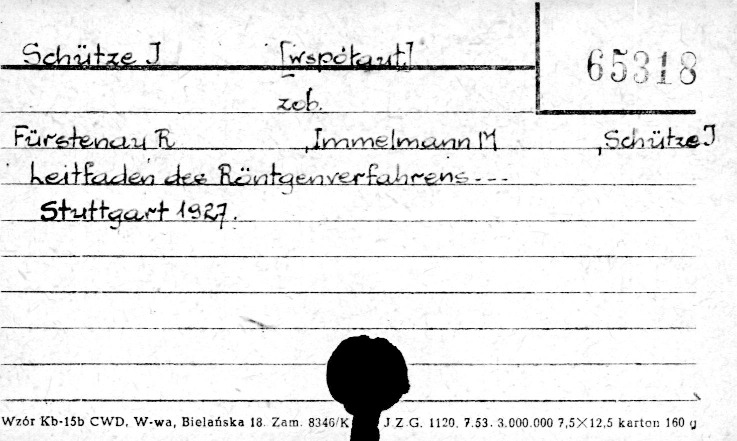 Schütze J [współaut.]
65318
zob.
Fürstenau R , Immelmann M , Schütze J
Leitfaden des Röntgenverfahrens---
Stuttgart 1927.
Wzór Kb-15b CWD, W-wa, Bielańska 18. Zam. 8346/K J.Z.G. 1120. 7.53. 3.000.000 7,5×12,5 karton 160 g